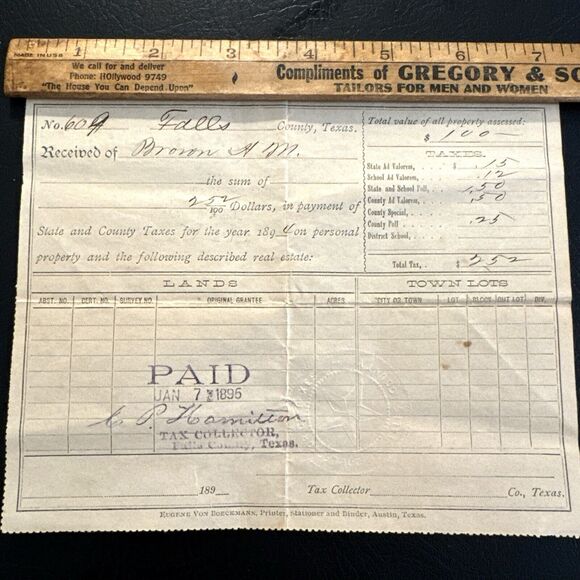 MADE IN U.S.A. 1 2 3 4 5 6 7
We call for and deliver
Phone: HOllywood 9749
"The House You Can Depend Upon"
Compliments of GREGORY & SO
TAILORS FOR MEN AND WOMEN
No. 609 Falls County, Texas.
Received of Brown A. M.
the sum of
2 52/100 Dollars, in payment of
State and County Taxes for the year 1894 on personal
property and the following described real estate:
Total value of all property assessed:
$ 100
TAXES.
State Ad Valorem, $ .15
School Ad Valorem, .12
State and School Poll, 1.50
County Ad Valorem, .50
County Special,
County Poll .25
District School,
Total Tax, $ 2 52
LANDS TOWN LOTS
ABST. NO. CERT. NO. SURVEY NO. ORIGINAL GRANTEE ACRES CITY OR TOWN LOT BLOCK OUT LOT DIV.
PAID
JAN 7 1895
C. P. Hamilton
TAX COLLECTOR,
Falls County, Texas.
189 Tax Collector Co., Texas.
EUGENE VON BOECKMANN, Printer, Stationer and Binder, Austin, Texas.